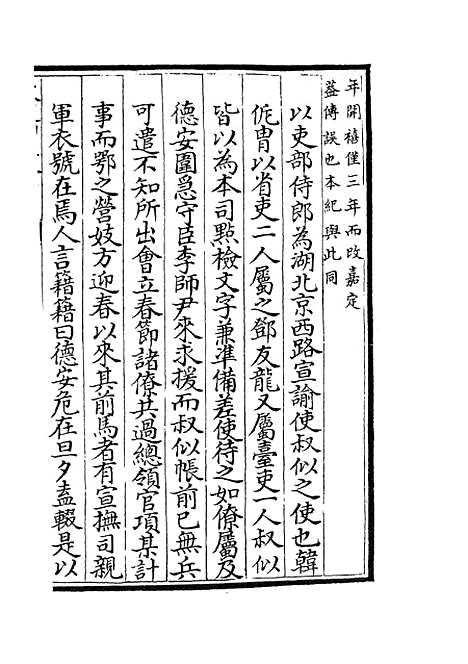 年開禧僅三年而改嘉定
葢傳誤也本紀與此同
以吏部侍郎為湖北京西路宣諭使叔似之使也韓
侂胄以省吏二人屬之鄧友龍又屬臺吏一人叔似
皆以為本司㸃檢文字兼準備差使待之如僚屬及
德安圍急守臣李師尹來求援而叔似帳前已無兵
可遣不知所出會立春節諸僚共過總領官項某計
事而鄂之營妓方迎春以來其前馬者有宣撫司親
軍衣號在焉人言籍籍曰德安危在旦夕盍輟是以